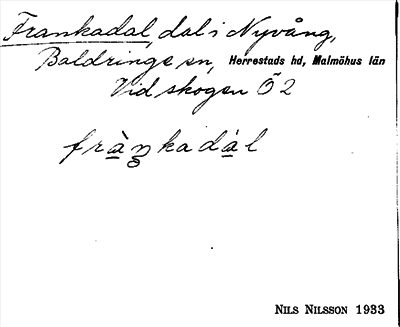 Frankadal, dal i Nyvång,
Baldringe sn, Herrestads hd, Malmöhus län
Vid skogen Ö2
fràŋkadál
NILS NILSSON 1933